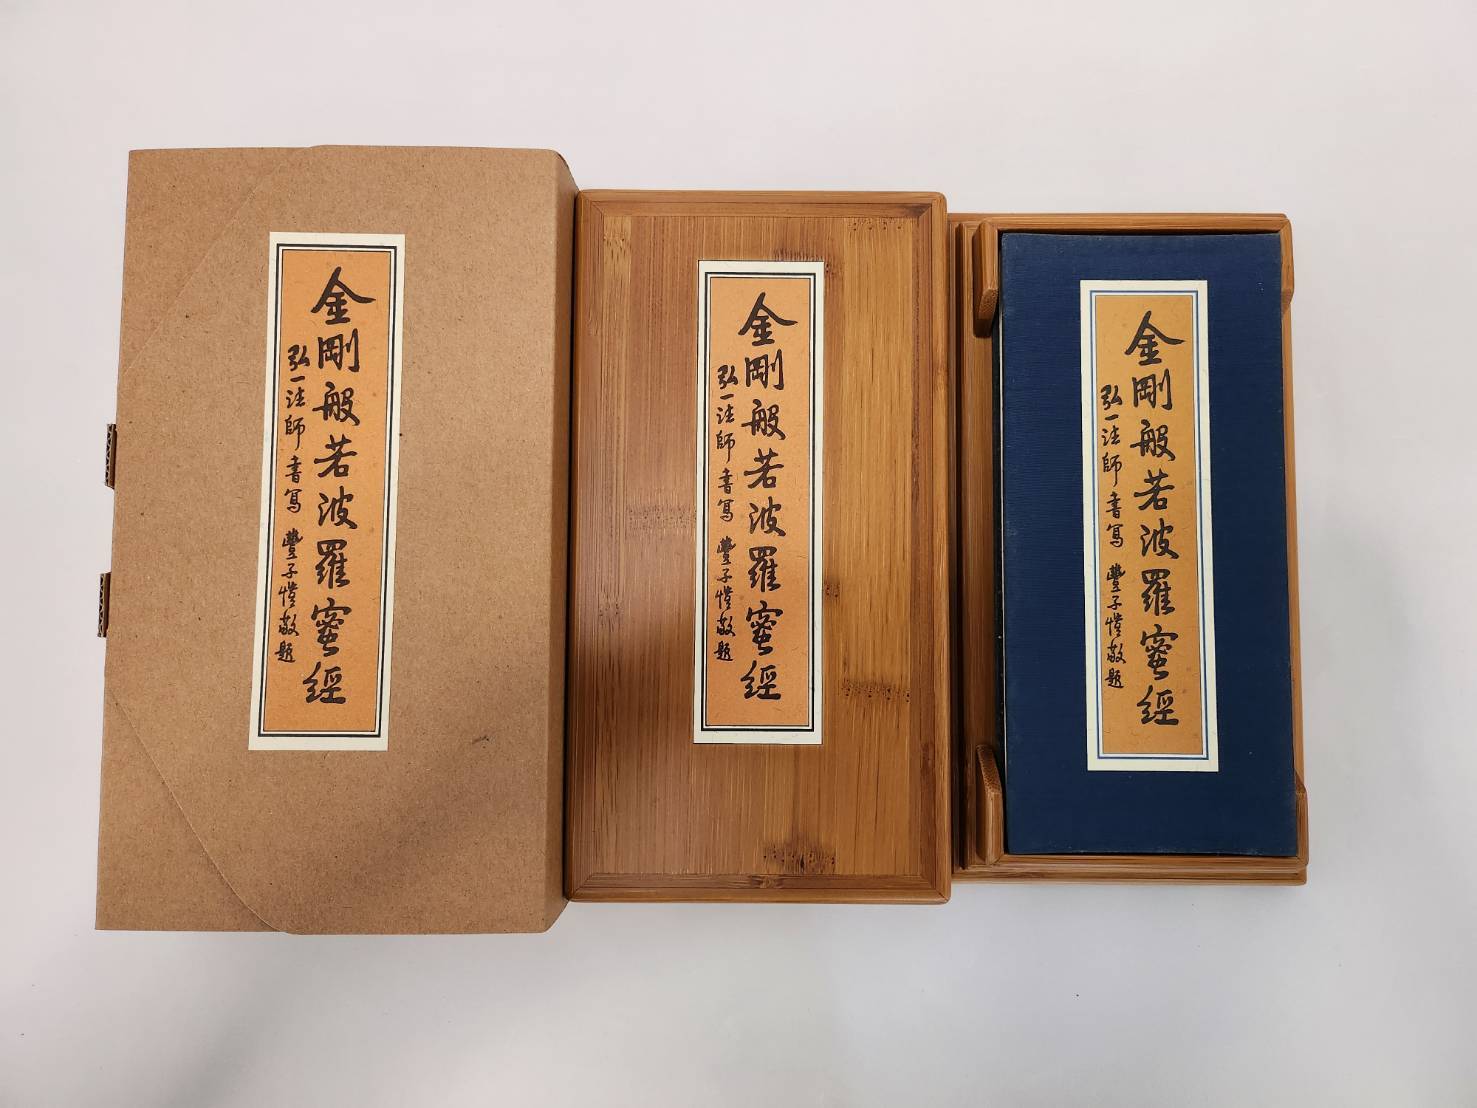 金剛般若波羅蜜經
弘一法師書寫 豐子愷敬題
金剛般若波羅蜜經
弘一法師書寫 豐子愷敬題
金剛般若波羅蜜經
弘一法師書寫 豐子愷敬題